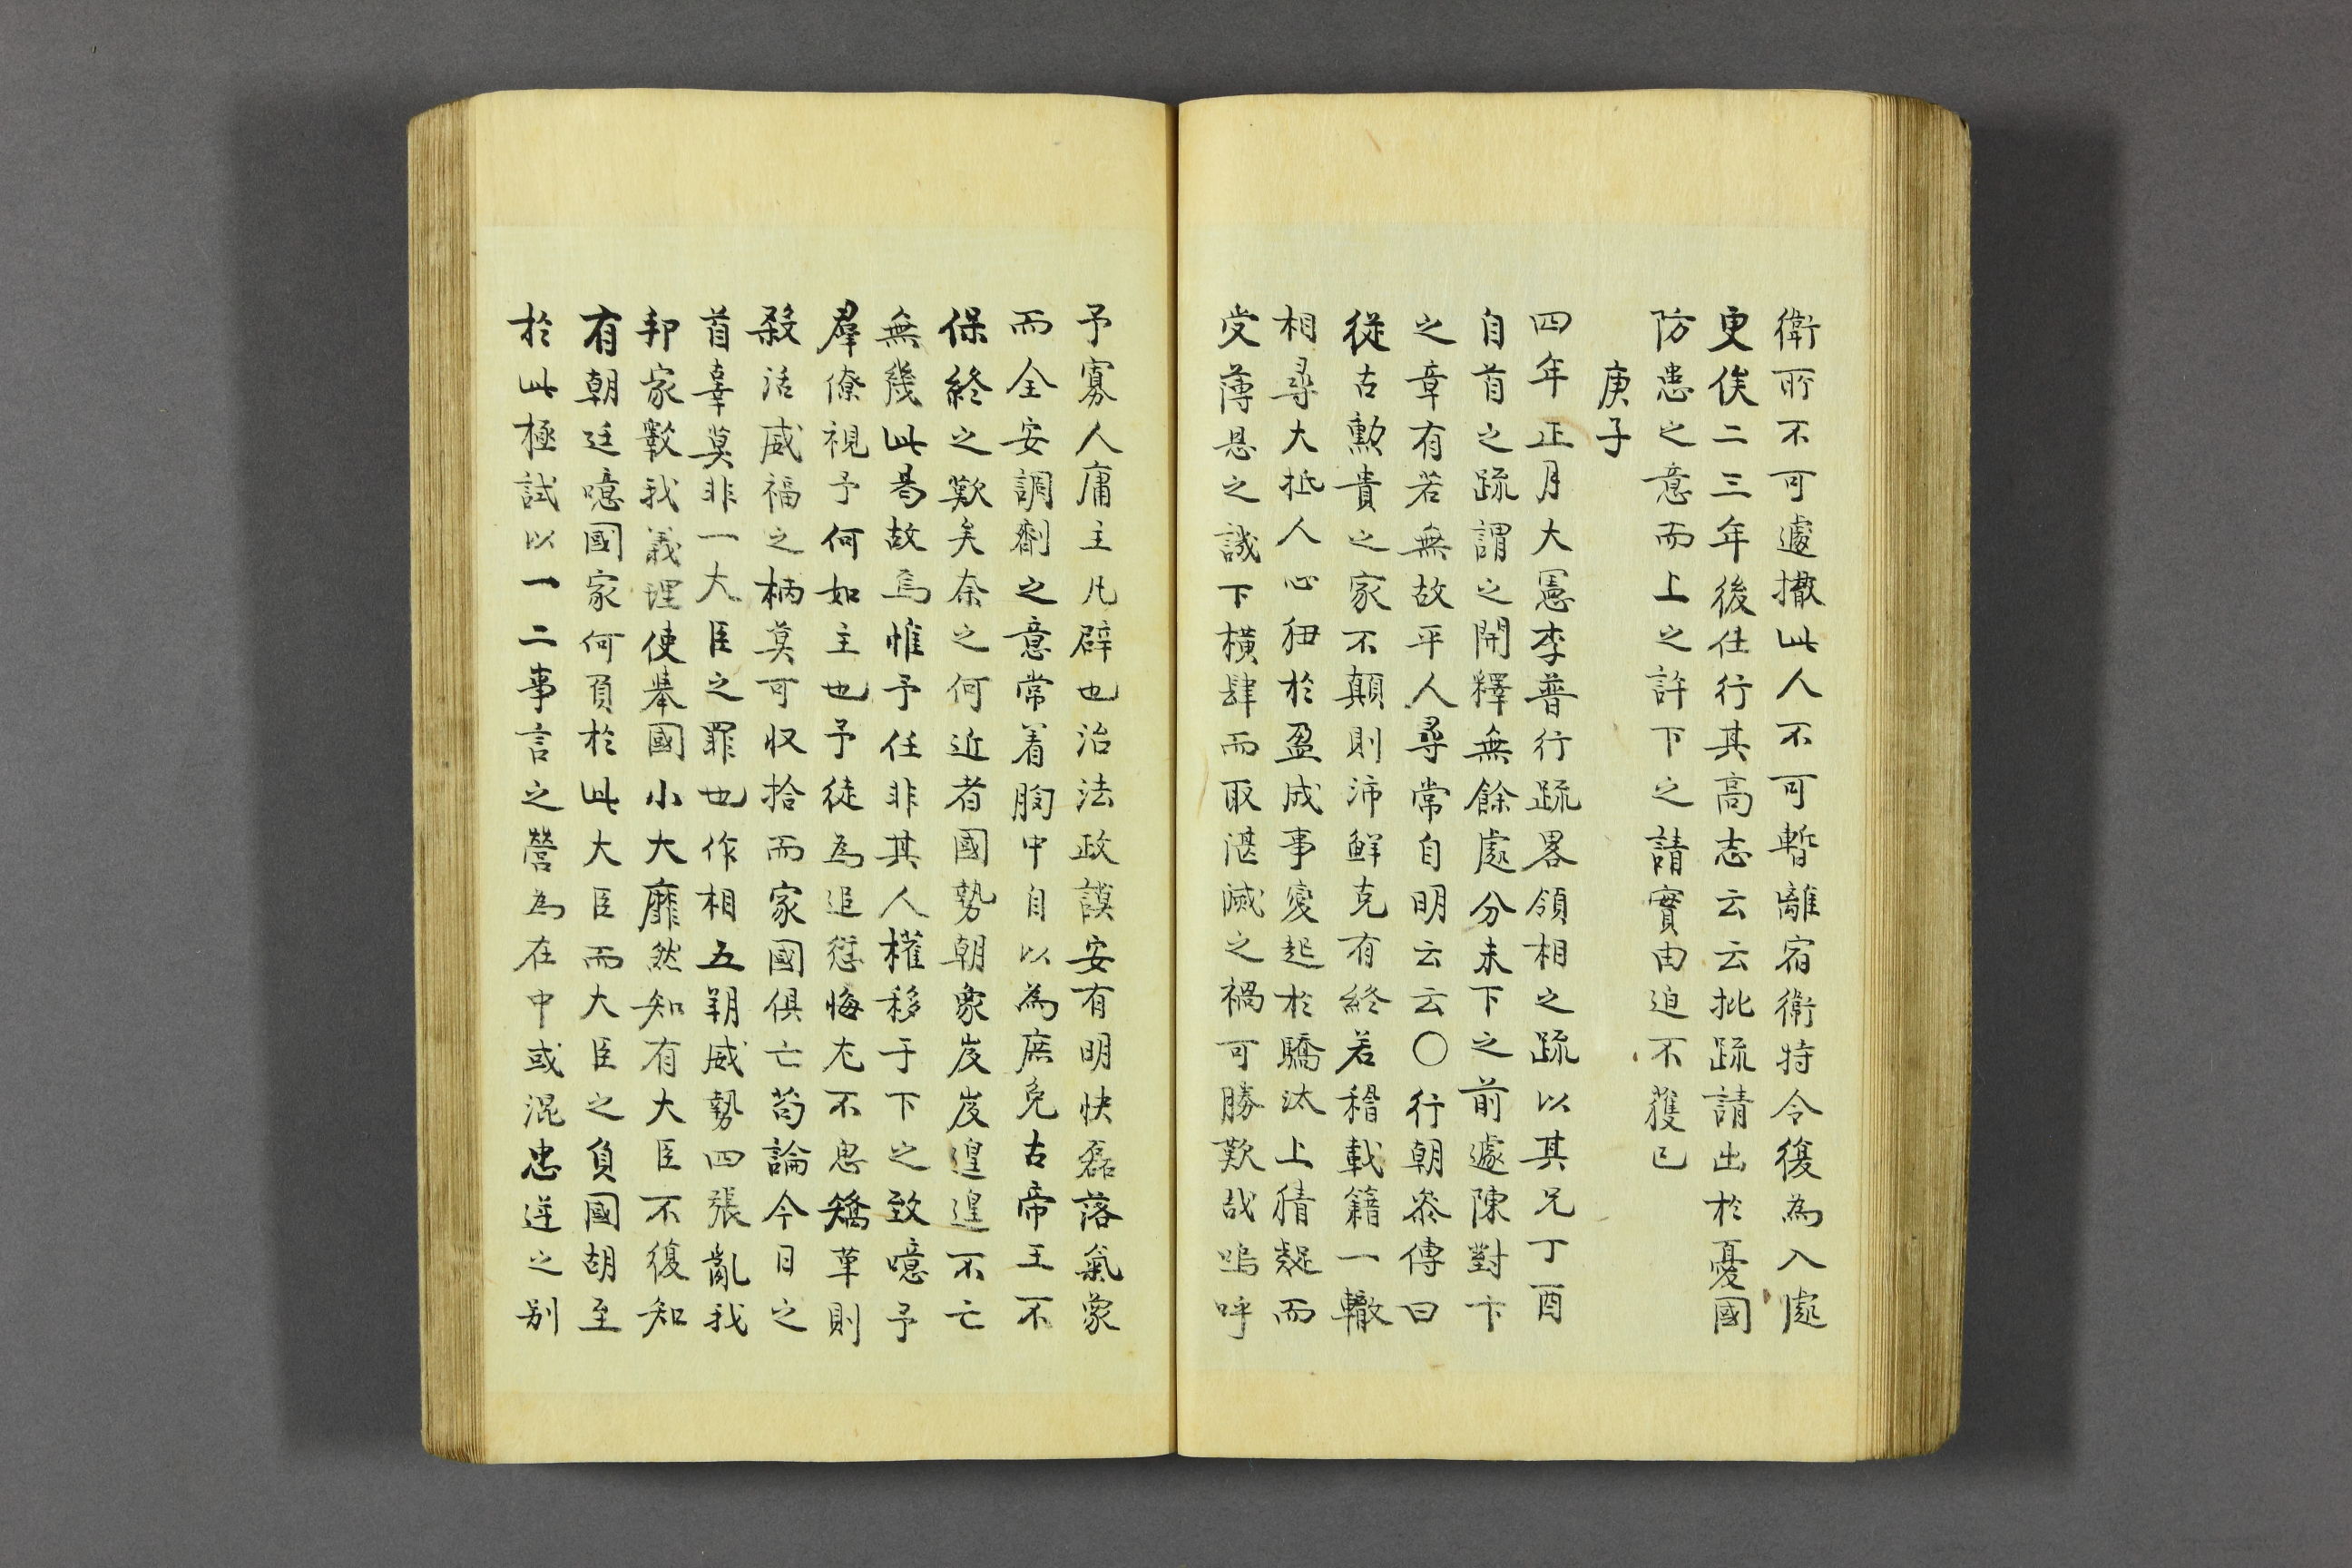 衛所不可遽撤此人不可暫離宿衛特令復為入處
更俟二三年後任行其高志云云批疏請出於憂國
防患之意而上之許下之請實由迫不獲已
庚子
四年正月大憲李普行疏畧領相之疏以其兄丁酉
自首之疏謂之開釋無餘處分未下之前遽陳對卞
之章有若無故平人尋常自明云云〇行朝叅傳曰
從古勲貴之家不顛則沛鮮克有終若稽載籍一轍
相尋大抵人心狃於盈成事變起於驕汰上猜疑而
受薄恩之譏下橫肆而取湛滅之禍可勝歎哉嗚呼
予寡人庸主凡辟也治法政謨安有明快磊落氣象
而全安調劑之意常着胸中自以為庶免古帝王不
保終之歎矣奈之何近者國勢朝象岌岌遑遑不亡
無幾此曷故焉惟予任非其人權移于下之致噫予
羣僚視予何如主也予徒為追愆悔尤不思矯革則
殺活威福之柄莫可収拾而家國俱亡苟論今日之
首辜莫非一大臣之罪也作相五朔威勢四張亂我
邦家斁我義理使舉國小大靡然知有大臣不復知
有朝廷噫國家何負於此大臣而大臣之負國胡至
於此極試以一二事言之營為在中或混忠逆之别